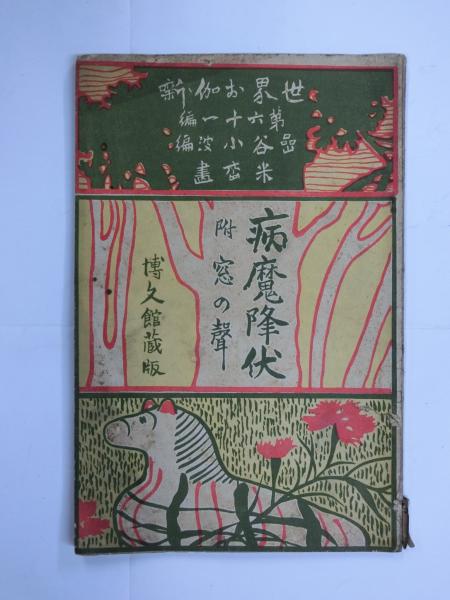 世界お伽噺
第六十一編
嵒谷小波編
米斎畫
病魔降伏
附 窓の聲
博文館蔵版